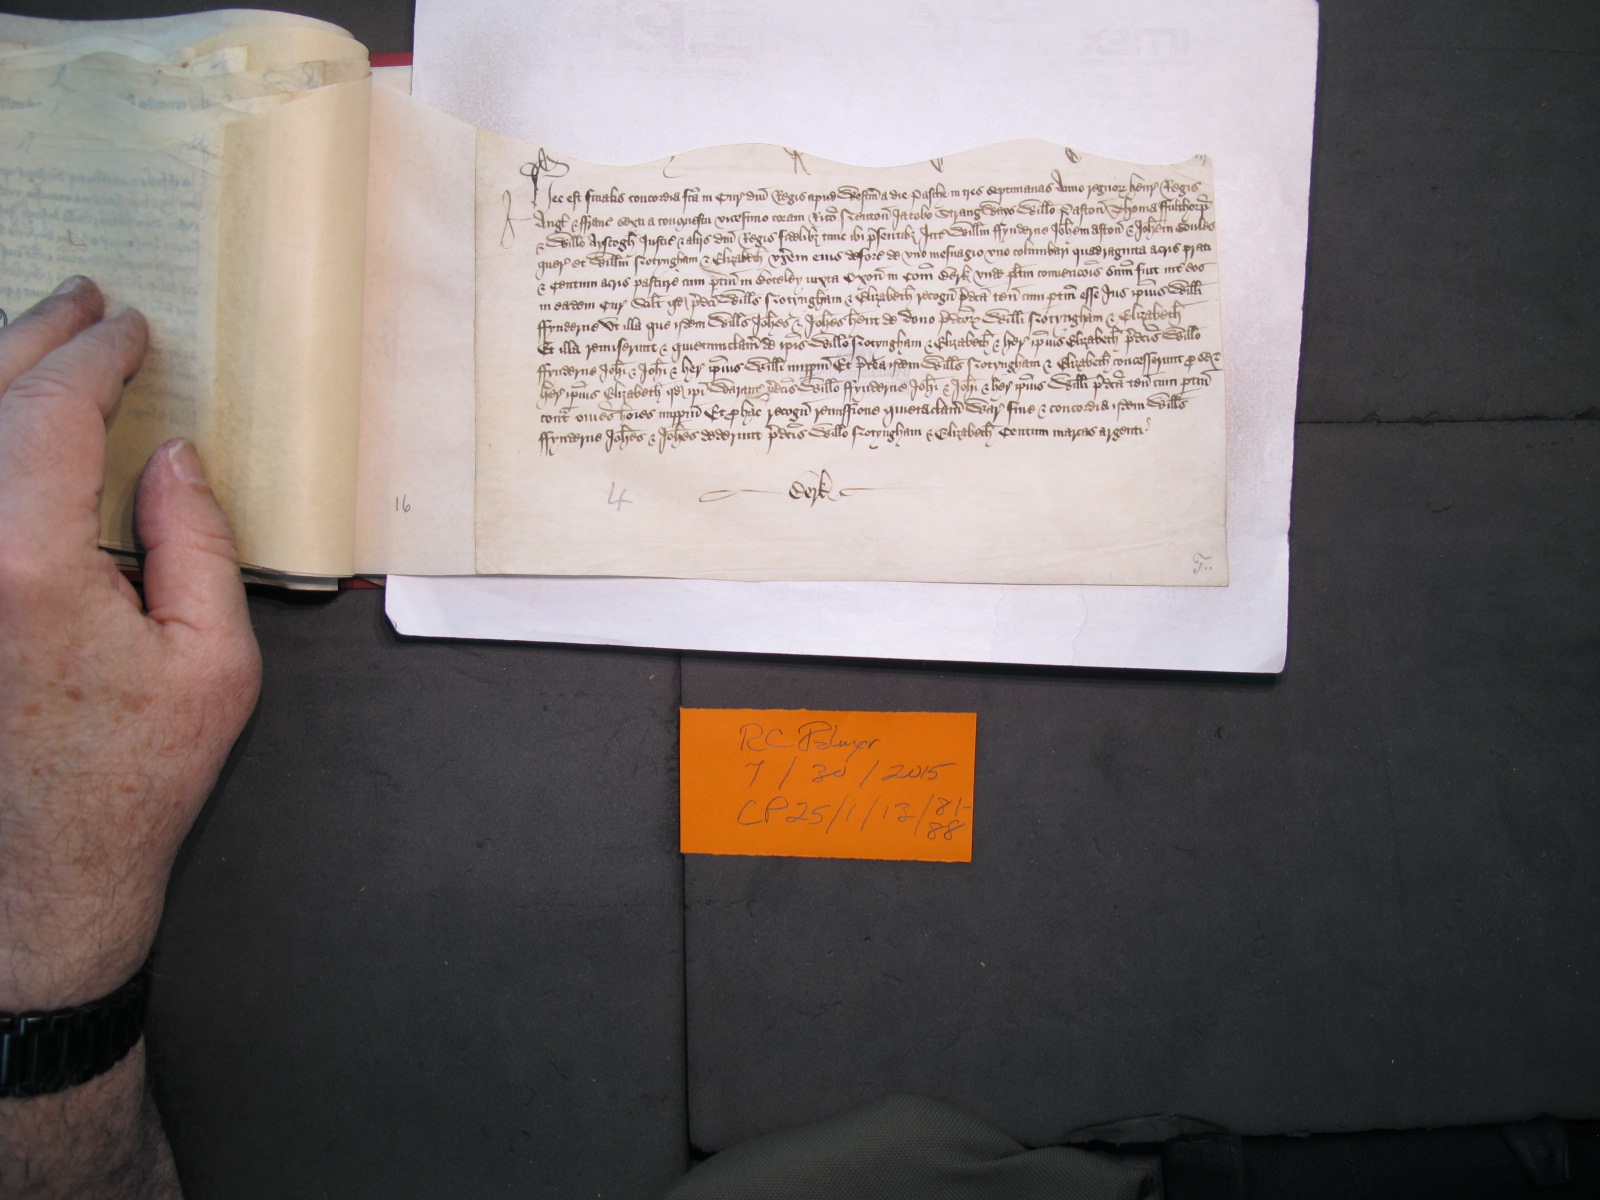 Hec est finalis concordia fca in Cur dni Regis apud Westm a die Pasche in tres septimanas Anno regnor Henr Regis
Angl & ffranc sexti a conquestu vicesimo coram Rico Newton Jacobo Strangways Willo Paston Thoma ffulthorp
& Willo Ayscogh Justic & alijs dni Regis fidelibz tunc ibi psentibz Int Willm ffynderne Johem aston & Johem
quer et Willm Notyngham & Elizabeth vxem eius deforc de vno mesuagio vno columbar quadraginta acris prati
& Centum acris pasture cum ptin in iuxta in Com Berk vnde plitm convencois sum fuit int eos
in eadem Cur Scilt qd pdci Wills Notyngham & Elizabeth recogn pdca ten cum ptin esse Jus ipius Willi
ffynderne Vt illa que ijdem Wills Johes & Johes hent de dono pdcor Willi Notyngham & Elizabeth
Et illa remiserunt & quietumclam de ipis Willo Notyngham & Elizabeth & her ipius Elizabeth pdcis Willo
ffynderne Johi & Johi & her ipius Willi imppm Et ptea ijdem Wills Notyngham & Elizabeth concesserunt p se &
her ipius Elizabeth qd ipi Warant pdcis Willo ffynderne Johi & Johi & her ipius Willi pdca ten cum ptin
cont omes hoies imppm Et p hac recogn remissione quietaclam War fine & concordia ijdem Wills
ffynderne Johes & Johes dederunt pdcis Willo Notyngham & Elizabeth Centum marcas argenti
Berk
4
16
RC Palmer
7 / 30 / 2015
CP25/1/13/81-
88